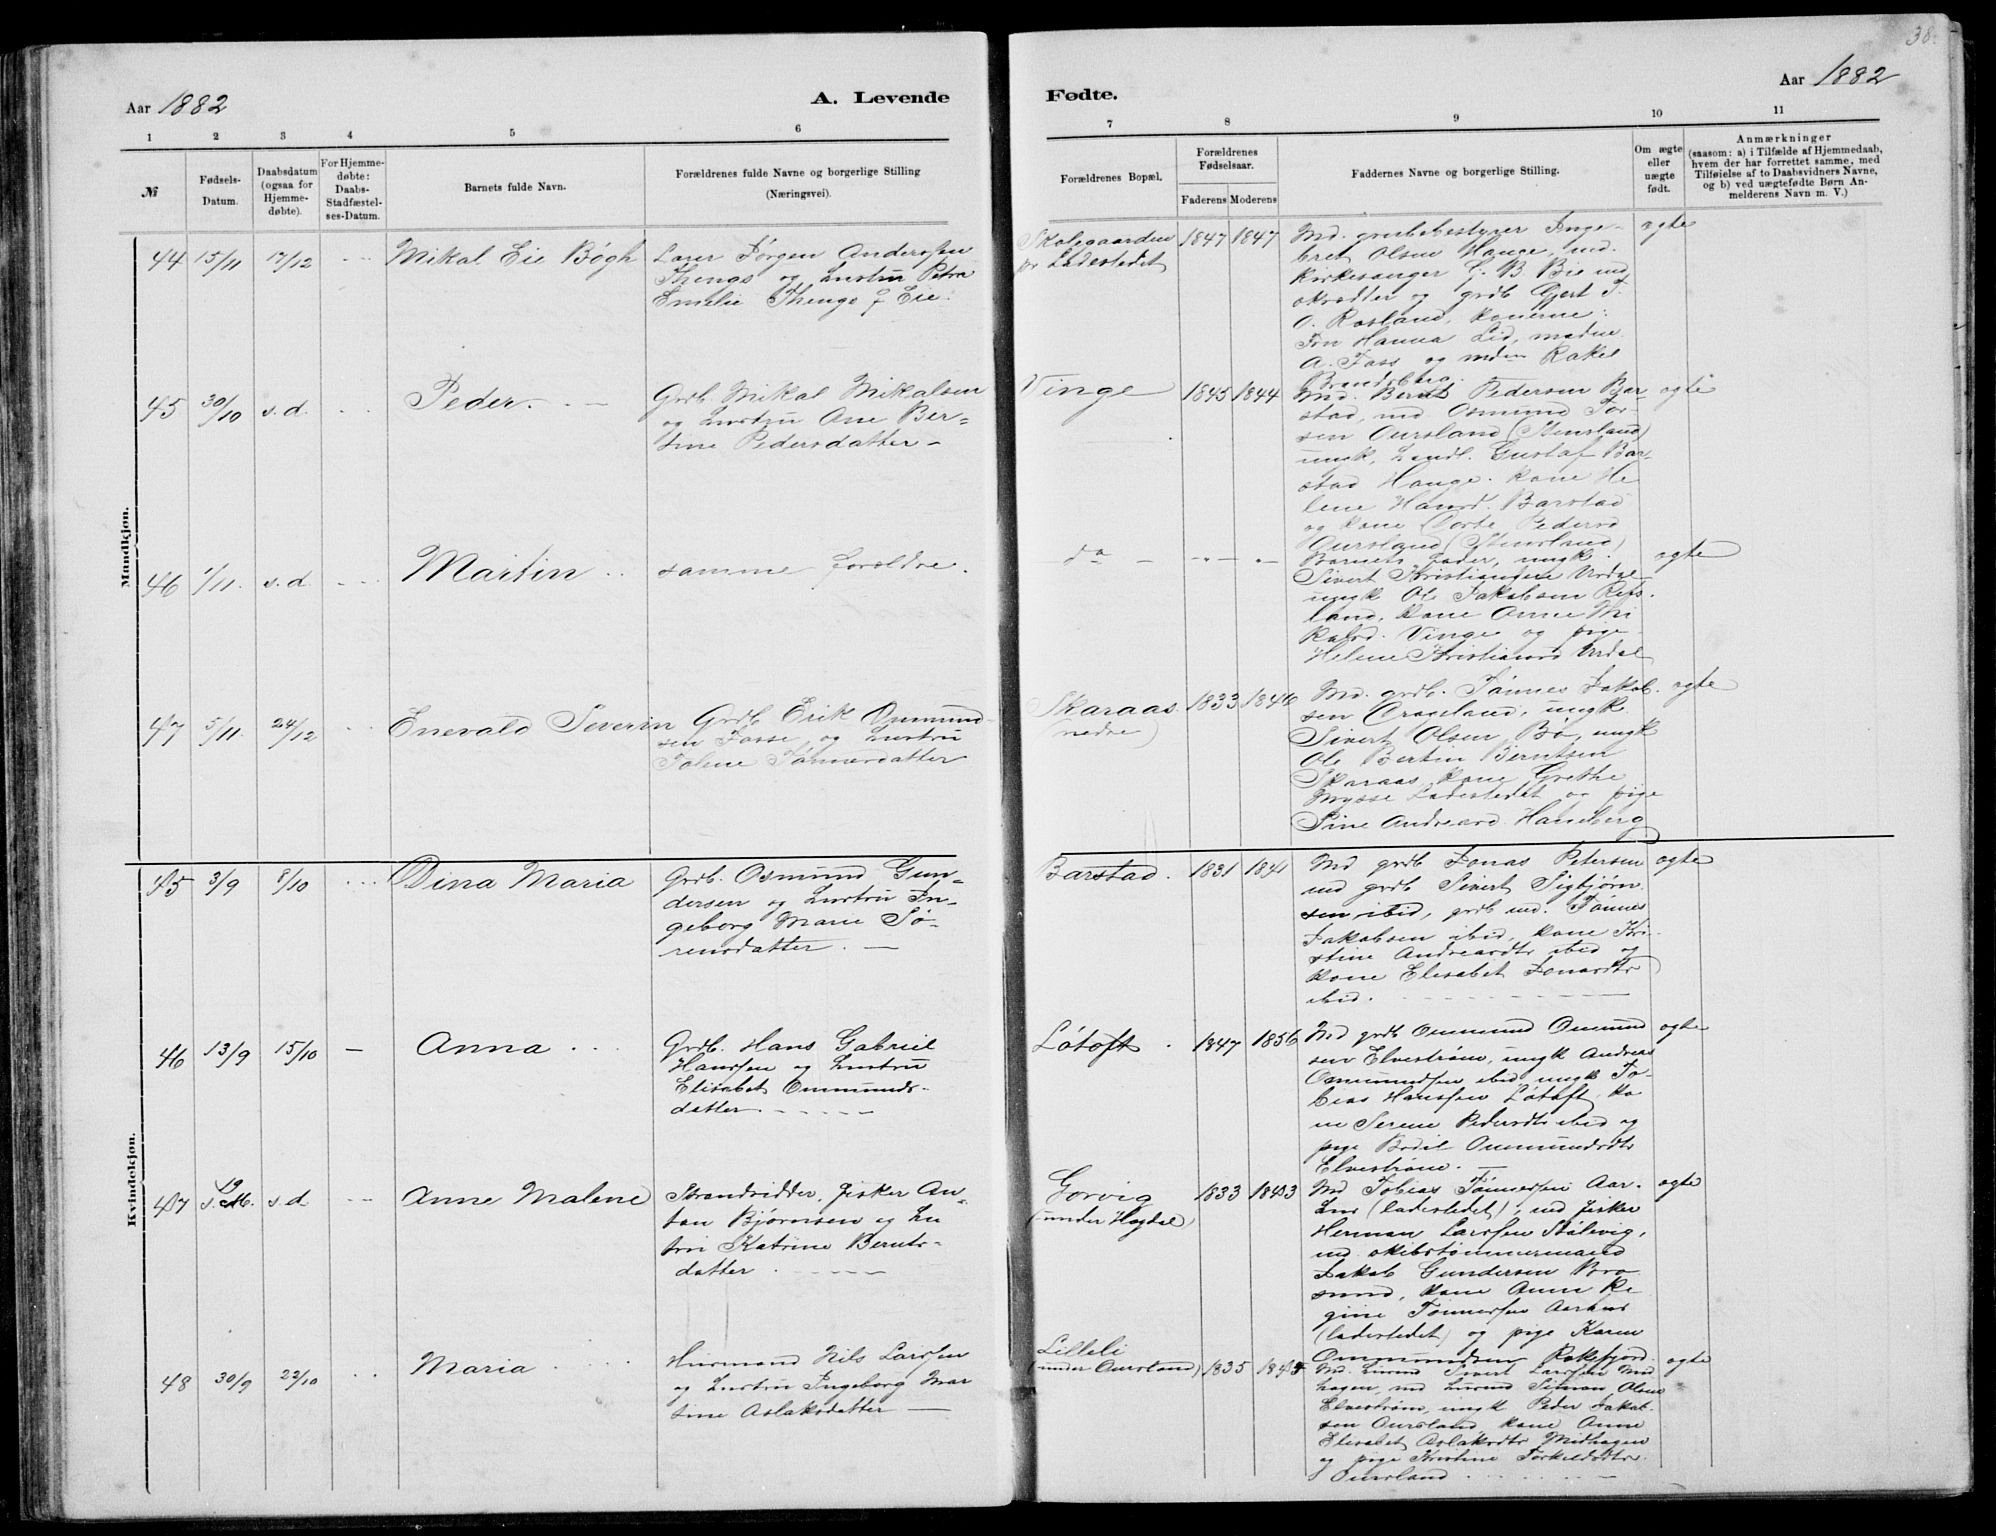 38.
Aar 1882
A. Levende
Fødte.
Aar 1882
1 2 3 4 5 6
7 8 9 10 11
№
Fødsels-
Datum.
Daabsdatum
(ogsaa for
Hjemme-
døbte).
For Hjemme-
døbte:
Daabs-
Stadfæstel-
ses-Datum.
Barnets fulde Navn.
Forældrenes fulde Navne og borgerlige Stilling
(Næringsvei).
Forældrenes Bopæl.
Forældrenes
Fødselsaar.
Faderens Moderens
Faddernes Navne og borgerlige Stilling.
Om ægte
eller
uægte
født.
Anmærkninger
(saasom: a) i Tilfælde af Hjemmedaab,
hvem der har forrettet samme, med
Tilføielse af to Daabsvidners Navne,
og b) ved uægtefødte Børn An-
melderens Navn m. V.)
Mandkjøn.
44 15/11 17/12 Mikal Eie Bøgh
Lærer Jørgen Anderssen
Thengs og hustru Petra
Emelie Thengs f. Eie.
Skolegaarden
Ladestedet
1847 1847
Md. Inge-
bret Olsen Hauge, md.
kirkesanger G. B. Bie md
skrædder og grdb Gjert T.
O. Rosland, konerne:
Hanna Lid, madme
A. Foss og mdm Rakel
Brandsberg.
ægte
45 30/10 s.d. Peder.
Grdb Mikal Mikalsen
og hustru Ane Ber-
tine Pedersdatter
Vinge
1845 1844
Md. Bernt Pedersen Bar
stad, md Osmund Tor-
sen Oursland (Stensland)
ungk. Handl. Gustaf Bar-
stad Hauge. kone He
lene Hansd. Barstad
og kone Dorte Pedersd
Oursland (Stensland)
ægte
46 1/11. s.d. Martin
samme forældre.
do
Barnets fader, ungk.
Sivert Kristiansen Urdal
ungk Ole Jakobsen Refs-
land, kone Anne Mi
kalsd. Vinge og pige
Helene Kristiansd Urdal
ægte
47 5/11. 24/12 Enevald Severin
Grdb Erik Osmund-
sen Fosse, og hustru
Tolene Tønnesdatter
Skaraas
(nedre)
1833 1846
Md. grdb. Tønnes Jakob-
sen Drageland, ungk
Sivert Olsen Bø, ungk
Ole Bertin Berntsen
Skaraas, kone Grethe
Mysse Ladestedet og pige
Sine Andreasd. Haneberg
ægte
Kvindekjøn.
45 3/9 8/10 Dina Maria
Grdb. Osmund Gun-
dersen og hustru In-
geborg Marie Sø-
rensdatter.
Barstad.
1831 1841
Md grdb Jonas Petersen
md grdb Sivert Sigbjørn
sen ibid, grdb md. Tønnes
Jakobsen ibid, kone Kri-
stine Andreasdtr ibid og
kone Elisabet Jonasdtr
ibid.
ægte
46 13/9 15/10 Anna
Grdb. Hans Gabriel
Hanssen og hustru
Elisabet Ommunds-
datter.
Løtoft.
1847 1856
Md grdb Ommund Ommund
sen Elvestrøm, ungk Andreas
Ommundsen ibid ungk To-
bias Hanssen Løtoft, ko
ne Serene Pedersdtr ibid og
pige Bodil Ommundsdtr
Elvestrøm.
ægte
47 s.d. Anne Malene
Strandsidder, fisker An-
ton Bjørnsen og hu
stru Katrine Bernts-
datter.
Gorvig
(under Høgdal)
1833 1843
Md Tobias Tønnessen Aar-
hus (ladestedet), md fisker
Herman Larssen Stølsvig,
md. skibstømmermand
Jakob Gundersen Bro
sund, kone Anne Re
gine Tønnessen Aarhus
(ladestedet) og pige Karen
Ommundsen Rakefjord.
ægte
48 30/9 22/10 Maria
Husmand Nils Larssen
og hustru Ingeborg Mar
tine Aslaksdatter
Lilleli
(under Oursland)
1835
Md. husmd Sivert Larssen Mid
hagen, md husmd Simon Olsen
Elvestrøm, ungk Peder Jakob-
sen Oursland kone Anne
Elisabet Aslaksdtr Midhagen
og pige Kristine Torkelsdtr
Oursland
ægte